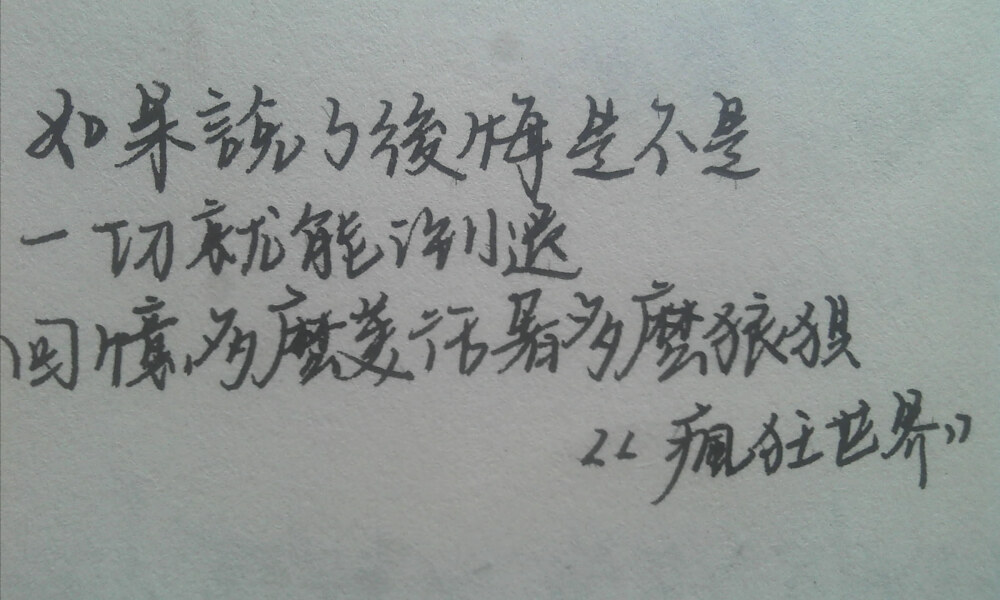 如果說了後悔是不是
一切就能倒退
回憶多麼美活著多麼狼狽
《瘋狂世界》